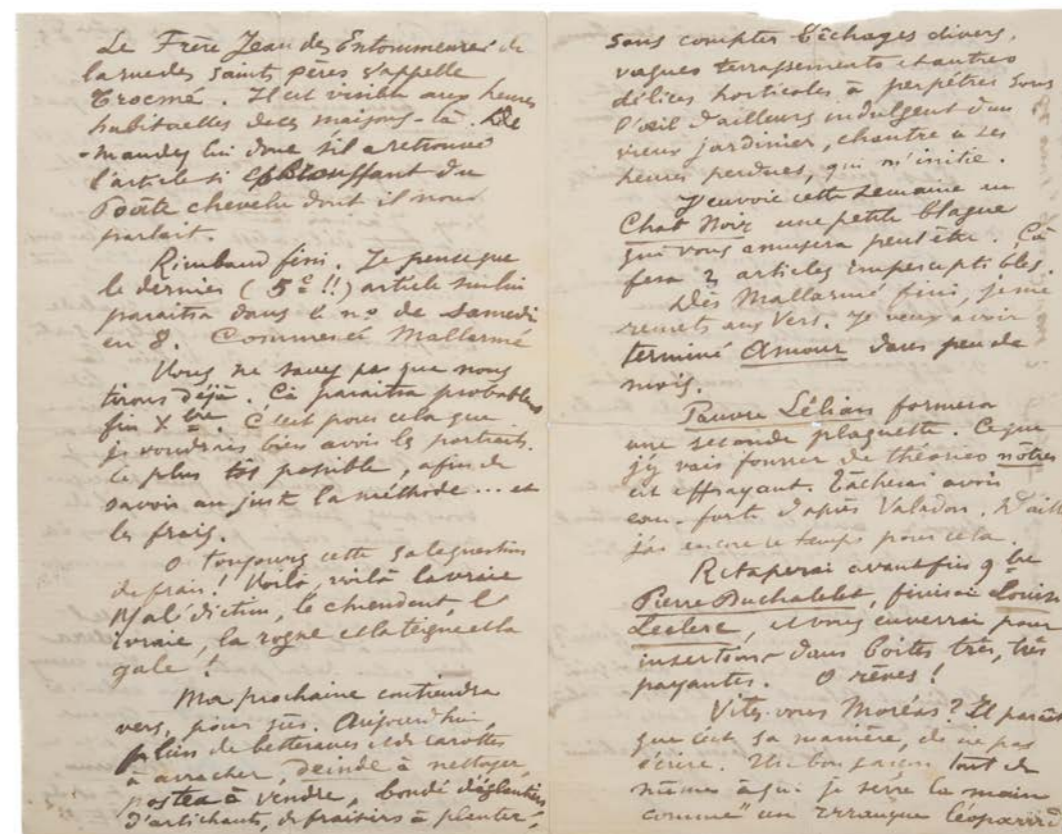 Le Frère Jean des Entommeures de
la rue des Saints pères s'appelle
Trocmé. Il est visible aux heures
habituelles de ces maisons-là. De
-mandez lui donc s'il a retrouvé
l'article si époustouffant du
Poète chevelu dont il nous
parlait.
Rimbaud fini. Je pense que
le dernier (5e!!) article sur lui
paraitra dans le no de Samedi
en 8. Commencé Mallarmé
Vous ne savez pas que nous
tirons déjà. Cà paraitra probablemt
fin Xbre. C'est pour cela que
je voudrais bien avoir les portraits
le plus tôt possible, afin de
savoir au juste la méthode... et
les frais.
O toujours cette sale question
de frais! Voilà, voilà la vraie
Malédiction, le chiendent, l'
ivraie, la rogne et la teigne et la
gale!
Ma prochaine contiendra
vers, pour sûr. Aujourd'hui,
plein de betteraves et de carottes
à arracher, deinde à nettoyer,
postea à vendre, bondé d'églantiers
d'artichauts, de fraisiers à planter,
sans compter bêchages divers,
vagues terrassements et autres
délices horticoles à perpétrer sous
l'œil d'ailleurs indulgent d'un
vieux jardinier, chantre à ses
heures perdues, qui m'initie.
J'envoie cette semaine au
Chat Noir une petite blague
qui vous amusera peut être. Cà
fera 2 articles imperceptibles.
Dès Mallarmé fini, je me
remets aux Vers. Je veux avoir
terminé Amour dans peu de
mois.
Pauvre Lélian formera
une seconde plaquette. Ce que
j'y vais fourrer de théories nôtres
est effrayant. Tâcherai avoir
eau-forte d'après Valadon. D'aill
j'ai encore le temps pour cela.
Retaperai avant fin 9bre
Pierre Duchatelet, finirai Louise
Leclerc, et vous enverrai pour
insertion dans boîtes très, très
payantes. O rêves!
Vites-vous Moréas? Il paraît
que c'est sa manière, de ne pas
écrire. Un bon garçon tout de
même à qui je serre la main
comme "un